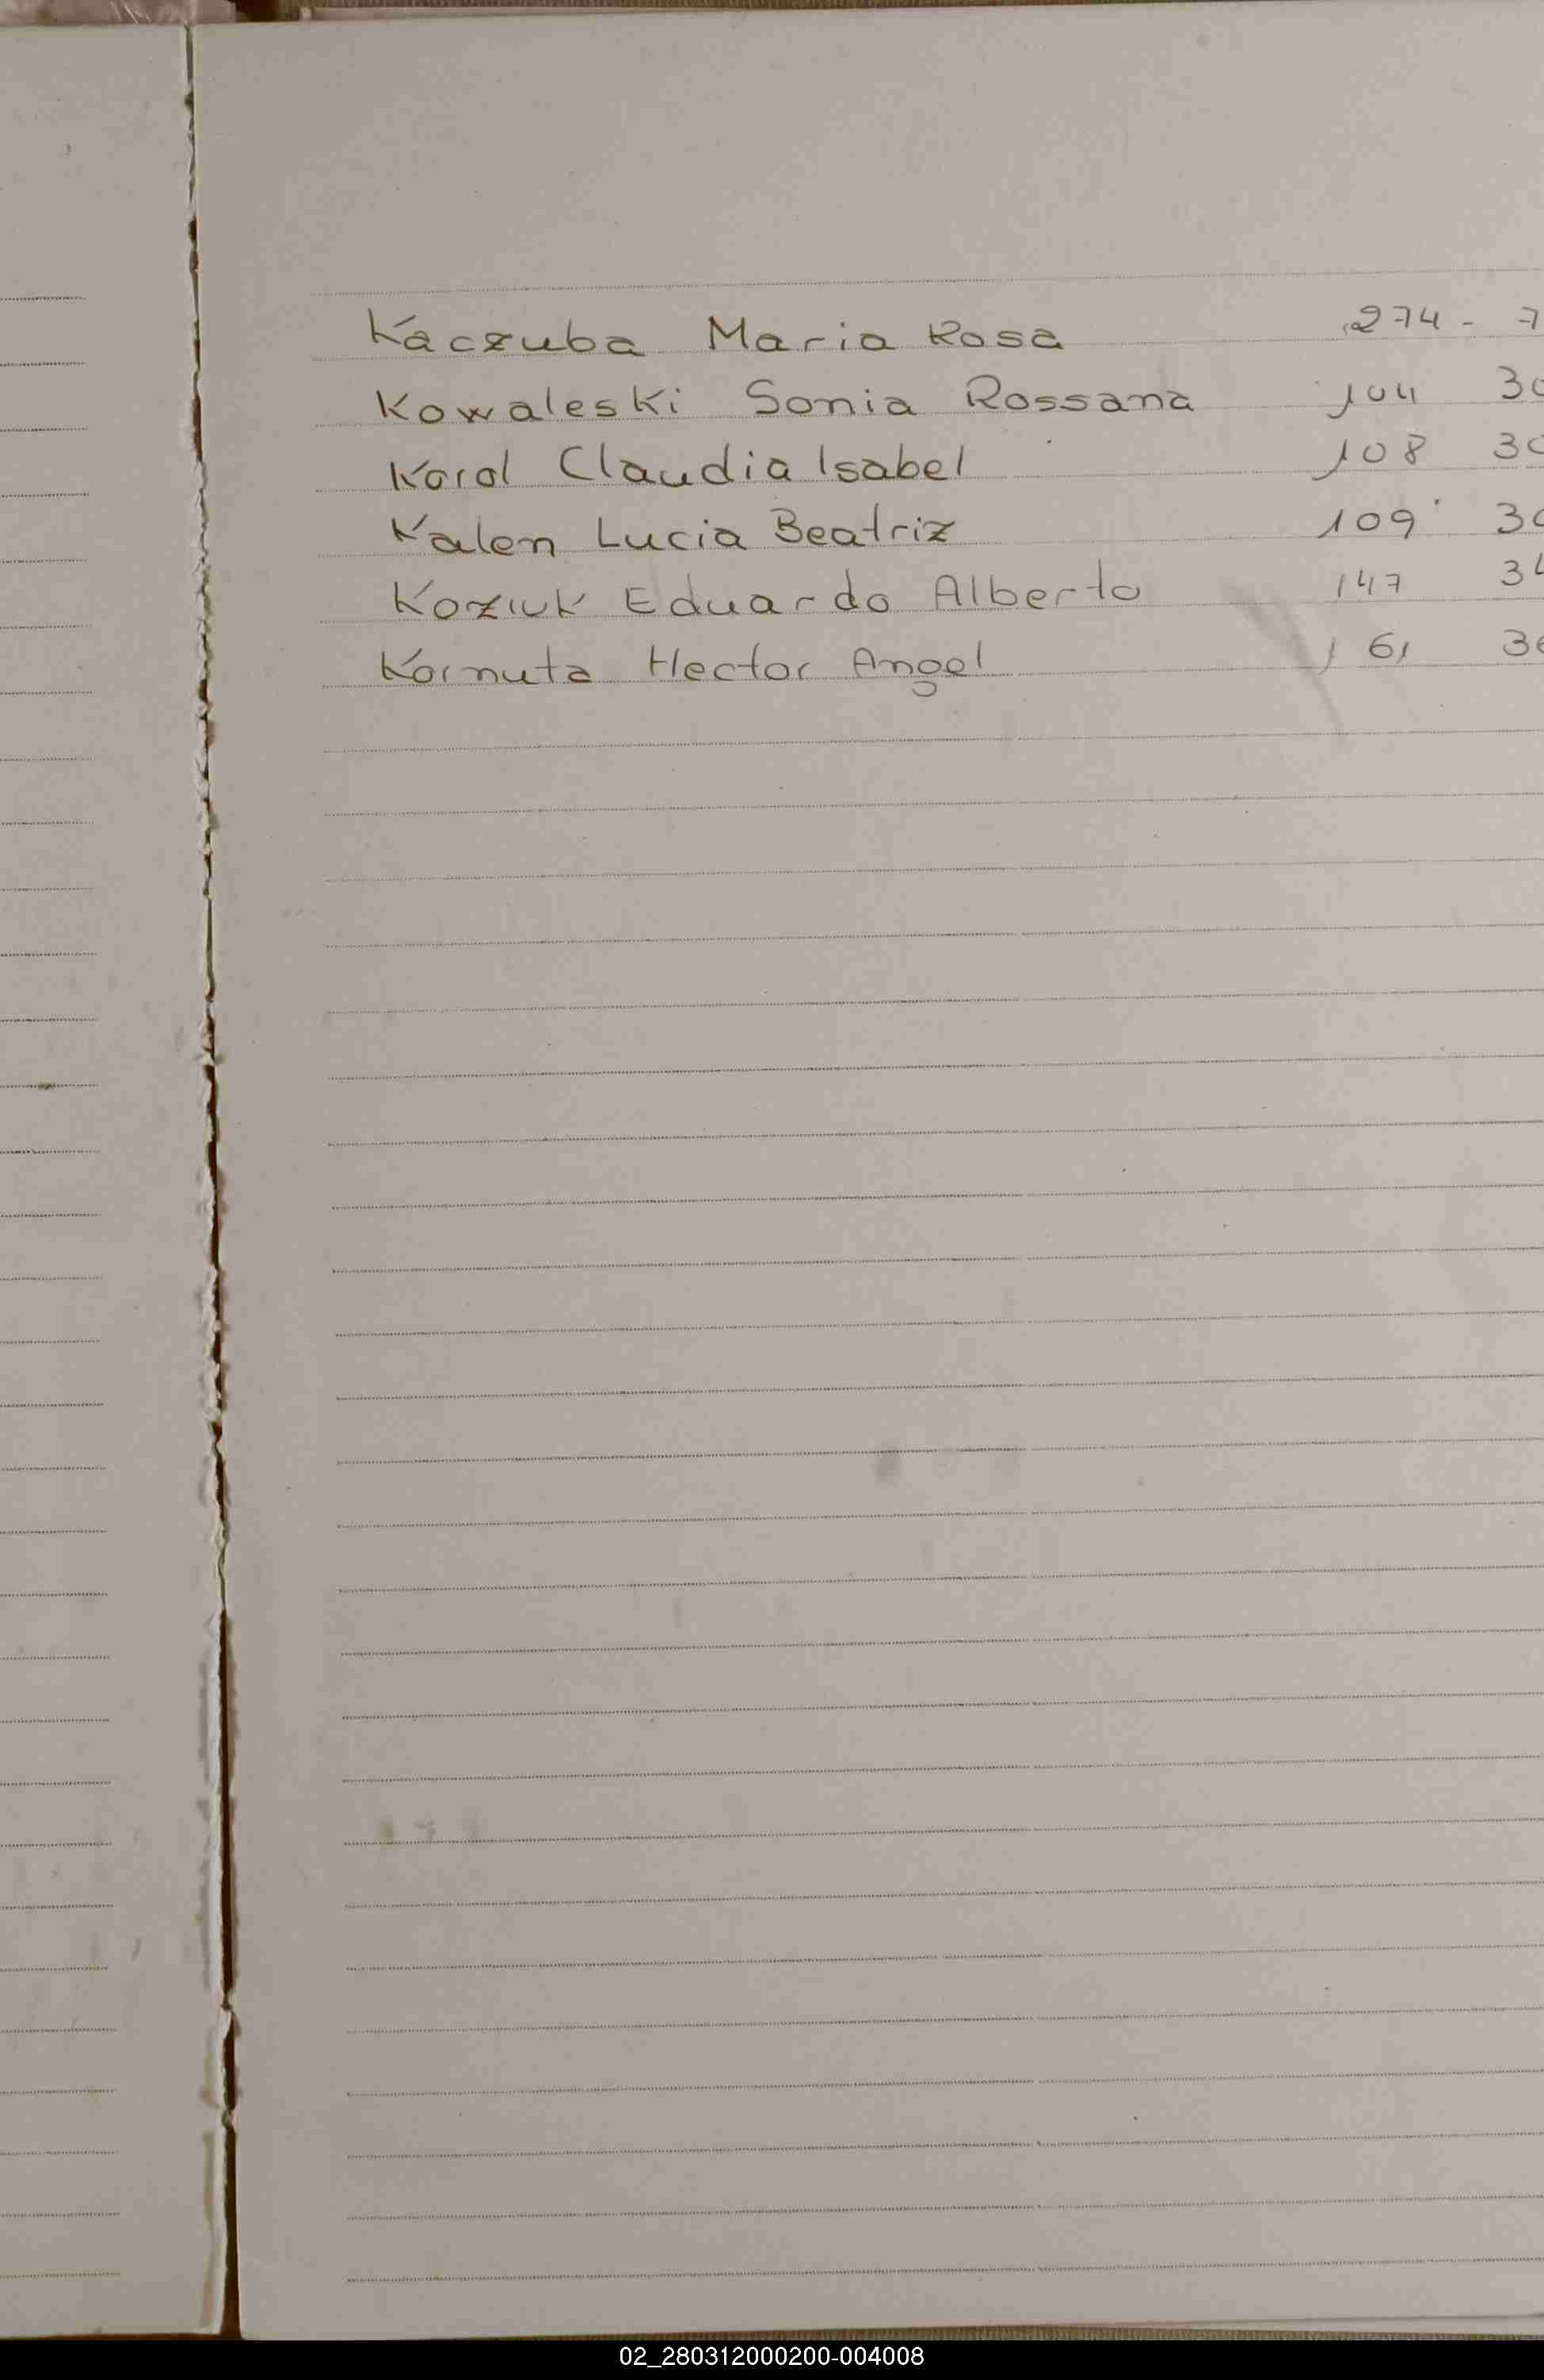 Kaczuba Maria Rosa 274 - 7
Kowaleski Sonia Rossana 104 30
Korol Claudia Isabel 108 30
Kalen Lucia Beatriz 109 30
Koziuk Eduardo Alberto 147 34
Kornuta Hector Angel 161 36
02_280312000200-004008